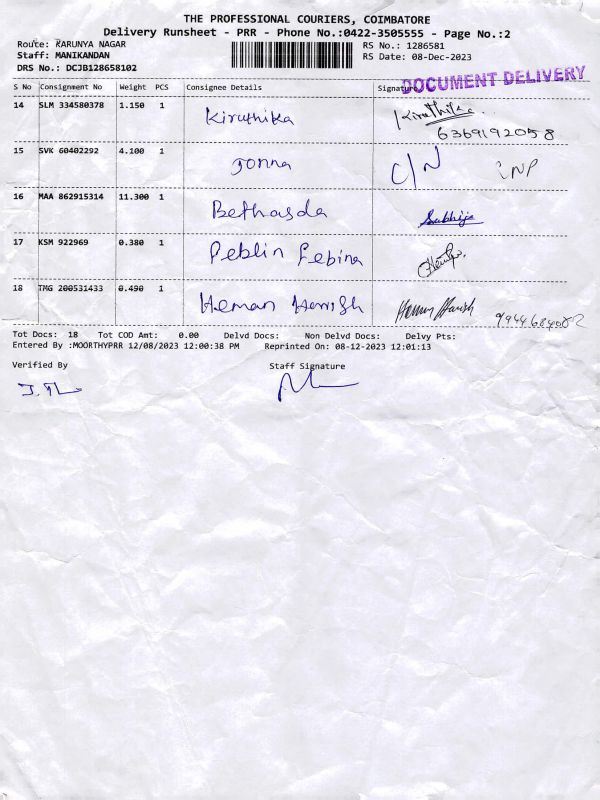 THE PROFESSIONAL COURIERS, COIMBATORE
Delivery Runsheet - PRR - Phone No.:0422-3505555 - Page No.:2
Route: KARUNYA NAGAR RS No.: 1286581
Staff: MANIKANDAN RS Date: 08-Dec-2023
DRS No.: DCJB128658102
DOCUMENT DELIVERY
S No Consignment No Weight PCS Consignee Details Signature
14 SLM 334580378 1.150 1 Kiruthika Kiruthika
6369192058
15 SVK 60402292 4.100 1 Jonna C/N INP
16 MAA 862915314 11.300 1 Bethasda
17 KSM 922969 0.380 1 Peblin Febina
18 TMG 200531433 0.490 1 Heman Harrish
Tot Docs: 18 Tot COD Amt: 0.00 Delvd Docs: Non Delvd Docs: Delvy Pts:
Entered By :MOORTHYPRR 12/08/2023 12:00:38 PM Reprinted On: 08-12-2023 12:01:13
Verified By Staff Signature